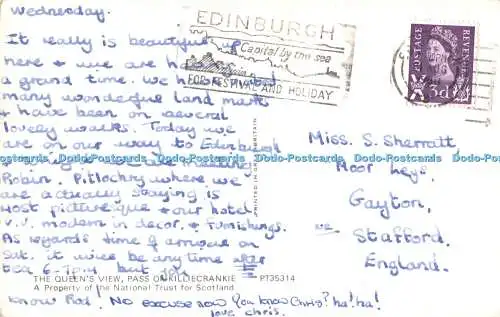 Wednesday.
It really is beautiful up
here & we are having
a grand time. We have
many wonderful land mark
& have been on several
lovely walks. Today we
are on our way to Edinburgh
meeting
Robin. Pitlochry where we
are actually staying is
most picturesque & our hotel
v.v. modern in decor, & furnishings.
As regards time of arrival on
Sat. it will be any time after
tea 6-7pm but you
know Rod! No excuse now you know Chris? ha! ha!
love chris.
THE QUEEN'S VIEW, PASS OF KILLIECRANKIE PT35314
A Property of the National Trust for Scotland
PRINTED IN GREAT BRITAIN
EDINBURGH
Capital by the sea
FOR FESTIVAL AND HOLIDAY
POSTAGE
REVENUE
3d
Miss. S. Sherratt,
Moor Leys,
Gayton,
Stafford.
England.
Dodo-Postcards Dodo-Postcards Dodo-Postcards Dodo-Postcards Dodo-Postcards Dodo-Postcards